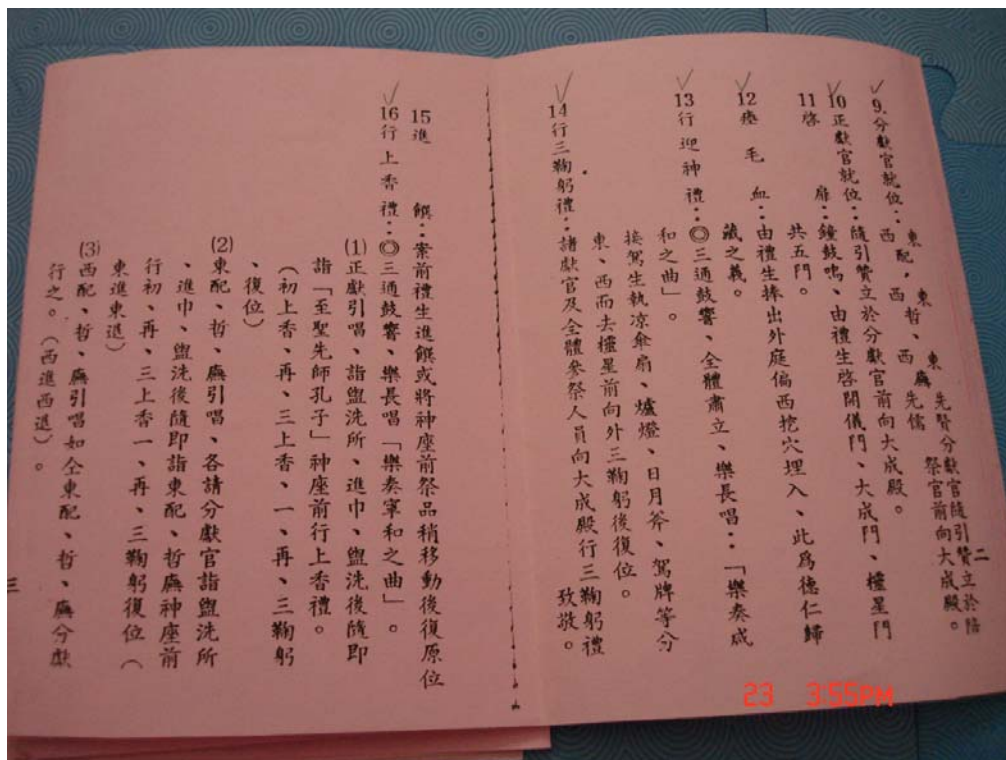 9.分獻官就位：東西配，東西哲、東西廡先賢先儒分獻官隨引贊立於陪祭官前向大成殿。
10正獻官就位：隨引贊立於分獻官前向大成殿。
11啓　扉：鐘鼓鳴、由禮生啓開儀門、大成門、櫺星門
共五門。
12瘞毛血：由禮生捧出外庭偏西挖穴埋入、此爲德仁歸
藏之義。
13行迎神禮：◎三通鼓響、全體肅立、樂長唱：「樂奏咸
和之曲」。
接駕生執凉傘扇、爐燈、日月斧、駕牌等分
東、西而去櫺星前向外三鞠躬後復位。
14行三鞠躬禮：諸獻官及全體參祭人員向大成殿行三鞠躬禮
致敬。
二
15進　饌：案前禮生進饌或將神座前祭品稍移動後復原位
16行上香禮：◎三通鼓響、樂長唱「樂奏寧和之曲」。
(1)正獻引唱、詣盥洗所、進巾、盥洗後隨即
詣「至聖先師孔子」神座前行上香禮。
（初上香、再、三上香、一、再、三鞠躬
、復位）
(2)東配、哲、廡引唱、各請分獻官詣盥洗所
、進巾、盥洗後隨即詣東配、哲廡神座前
行初、再、三上香一、再、三鞠躬復位（
東進東退）
(3)西配、哲、廡引唱如仝東配、哲、廡分獻
行之。（西進西退）。
三
23 3:55PM